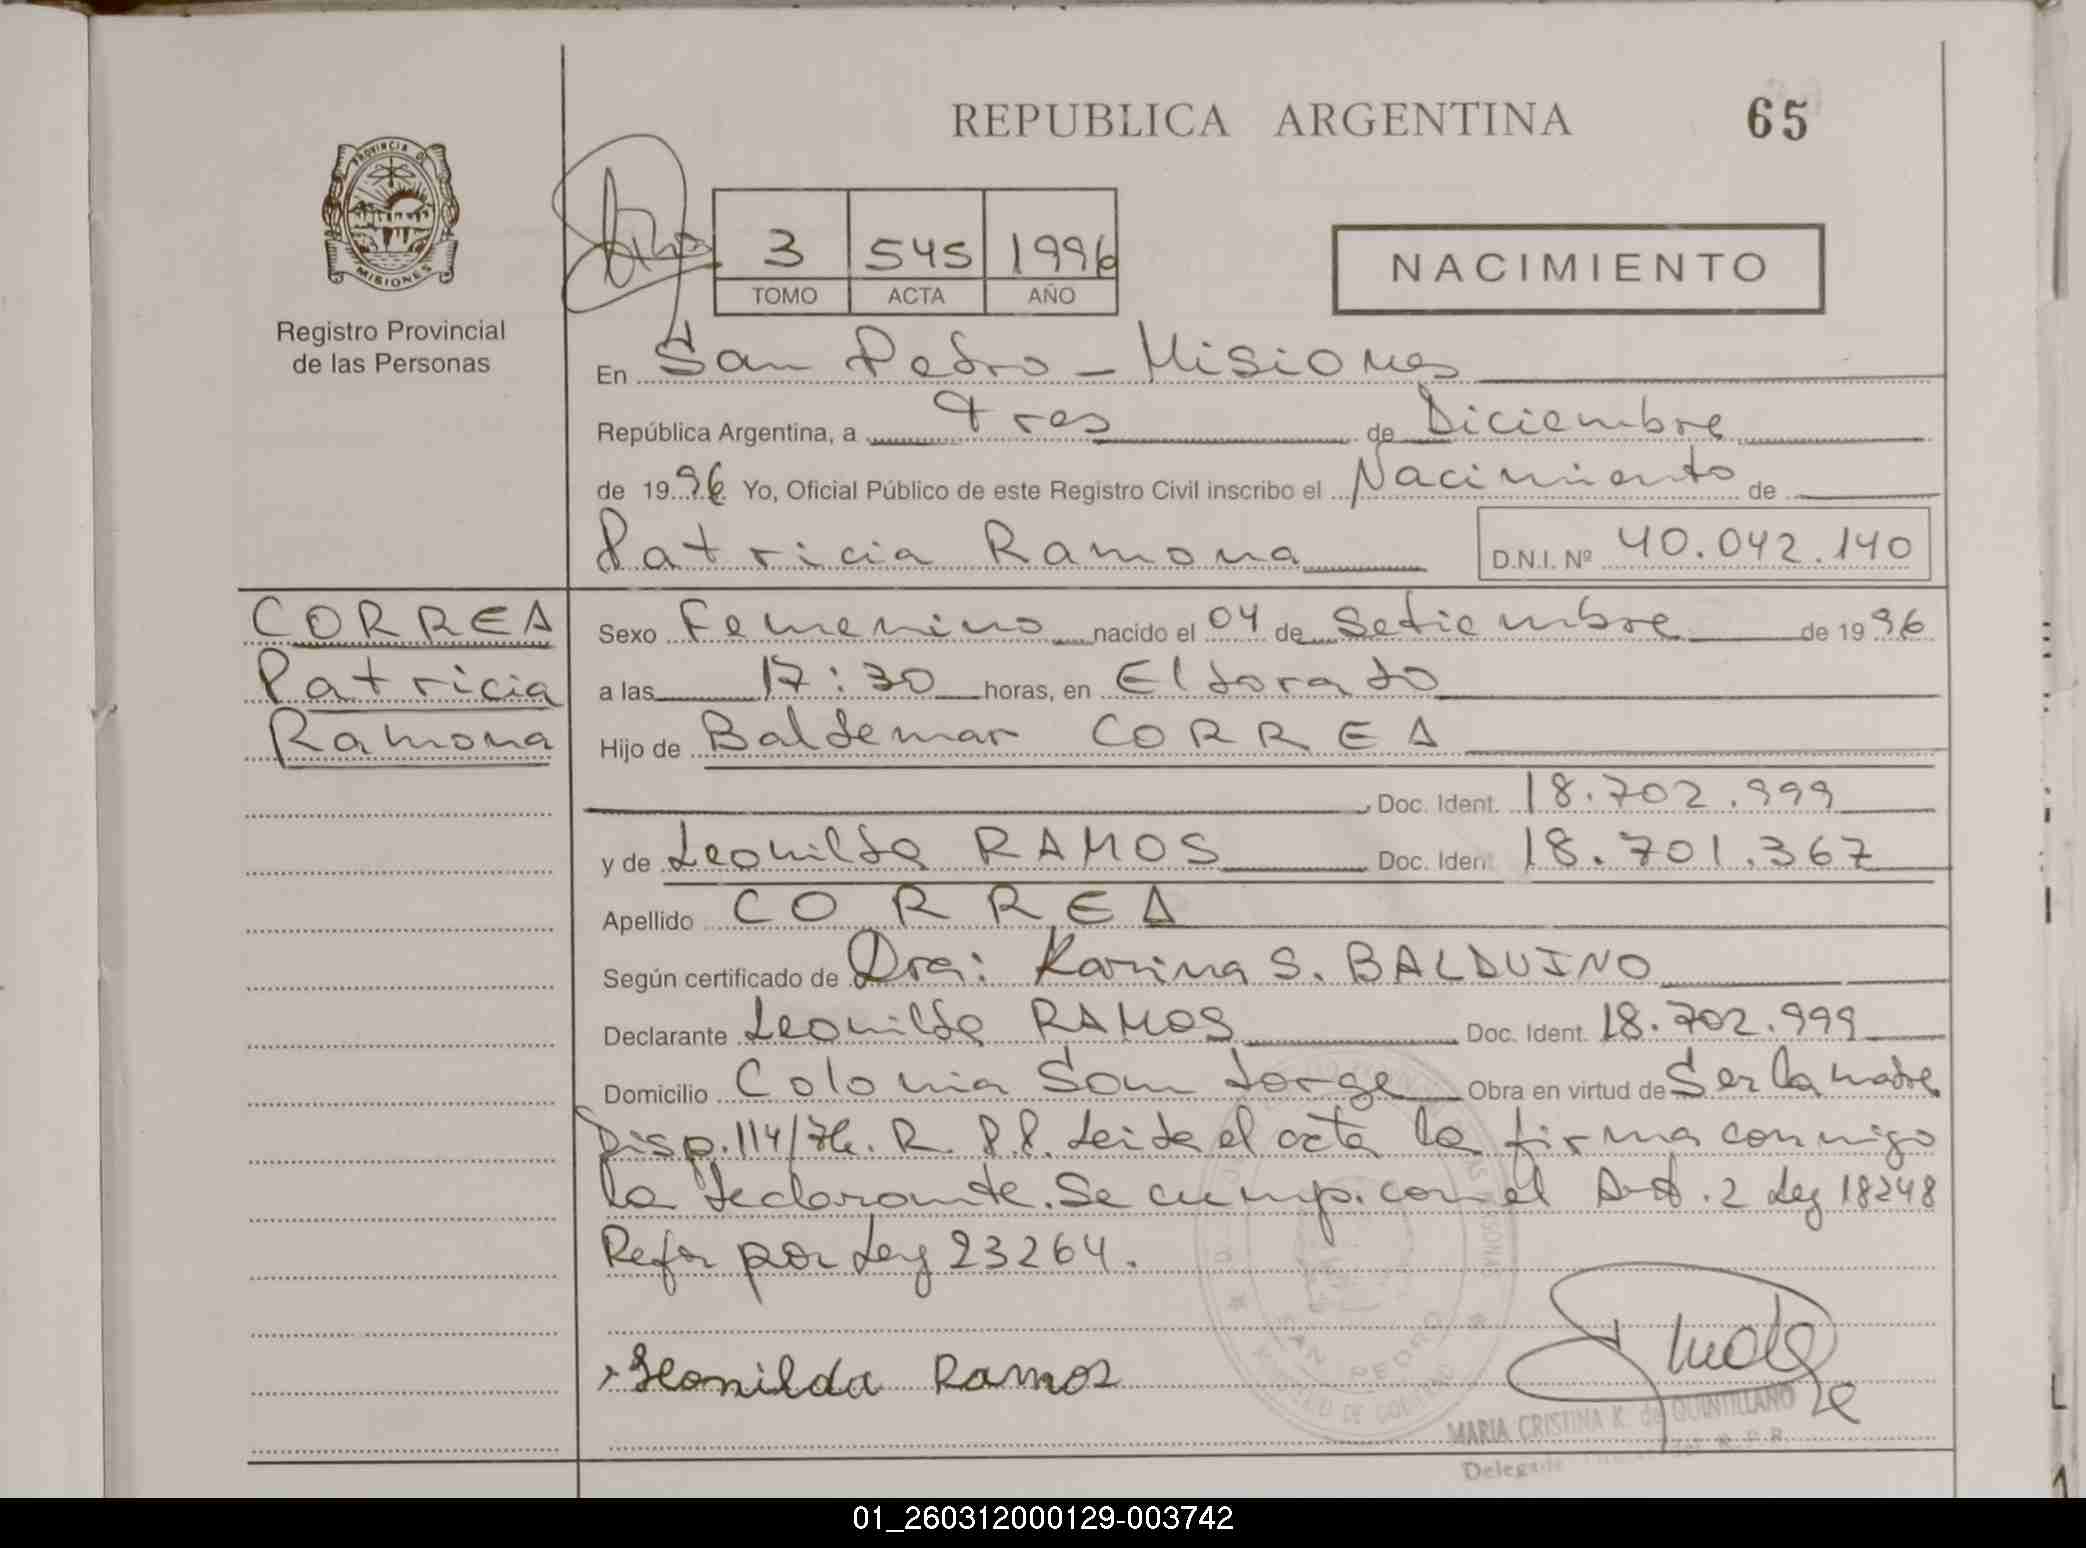 REPUBLICA ARGENTINA
65
PROVINCIA DE
MISIONES
Registro Provincial
de las Personas
3 545 1996
TOMO ACTA AÑO
NACIMIENTO
En San Pedro - Misiones
República Argentina, a Tres de Diciembre
de 1996 Yo, Oficial Público de este Registro Civil inscribo el Nacimiento de
Patricia Ramona D.N.I. Nº 40.042.140
CORREA
Patricia
Ramona
Sexo Femenino nacido el 04 de Setiembre de 1996
a las 17:30 horas, en Eldorado
Hijo de Baldemar CORREA
Doc. Ident. 18.702.999
y de Leonilda RAMOS Doc. Iden 18.701.367
Apellido CORREA
Según certificado de Dra: Karina S. BALDUINO
Declarante Leonilda RAMOS Doc. Ident. 18.702.999
Domicilio Colonia San Jorge Obra en virtud de Ser la madre
Disp. 114/76. R.P.P. Leida el acta la firma conmigo
la declarante. Se cump. con el Art. 2 Ley 18248
Refor por Ley 23264.
Leonilda Ramos
SAN PEDRO
MARIA CRISTINA K. de QUINTILLANO
R.P.P.
01_260312000129-003742